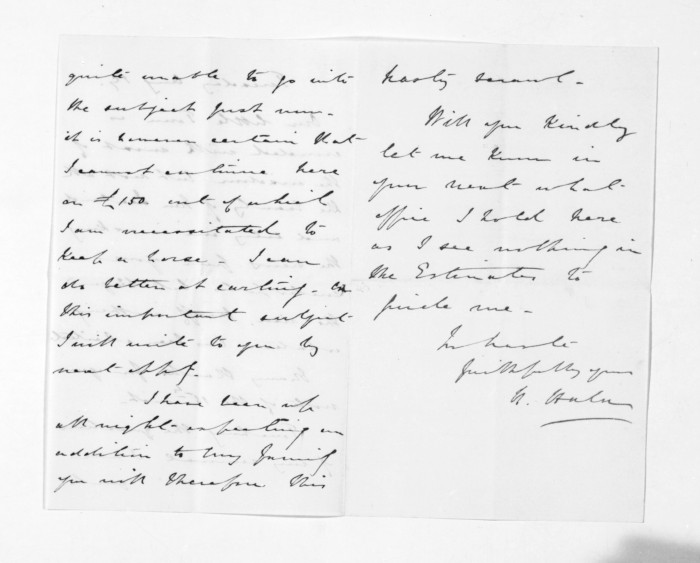 quite unable to go into
the subject just now -
it is however certain that
I cannot continue here
on £150 out of which
I am necessitated to
keep a horse - I can
do better at carting - on
this important subject
I will write to you by
next oppy.
I have been up
all night expecting an
addition to my family
you will therefore this
hasty scrawl -
Will you kindly
let me know in
your next what
office I hold here
as I see nothing in
the Estimates to
guide me -
In haste
faithfully yours